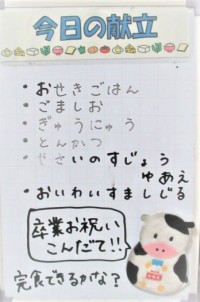 今日の献立
・おせきごはん
・ごましお
・ぎゅうにゅう
・とんかつ
・やさいのすじょう
ゆあえ
・おいわいすましじる
卒業お祝い
こんだて!!
完食できるかな?